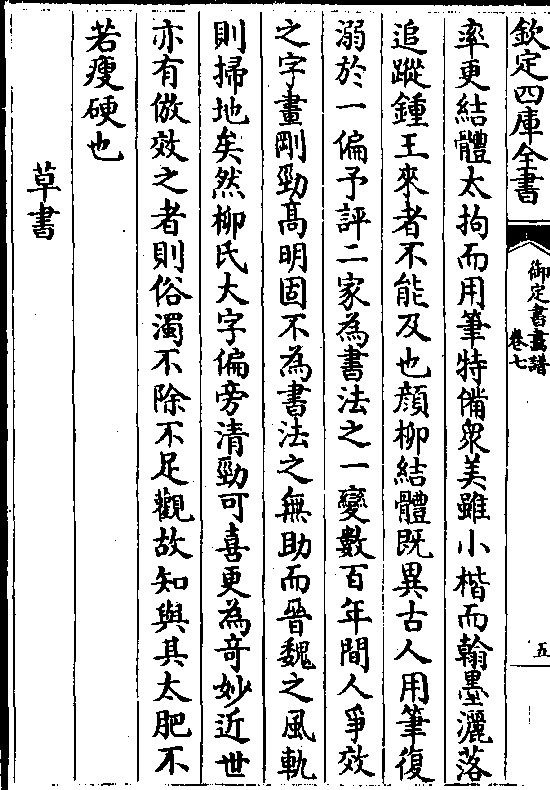 欽定四庫全書
御定書畫譜
卷七
五
率更結體太拘而用筆特備衆美雖小楷而翰墨灑落
追蹤鍾王來者不能及也顔柳結體既異古人用筆復
溺於一偏予評二家為書法之一變數百年間人爭效
之字畫剛勁髙明固不為書法之無助而晉魏之風軌
則掃地矣然柳氏大字偏旁清勁可喜更為奇妙近世
亦有倣效之者則俗濁不除不足觀故知與其太肥不
若瘦硬也
草書